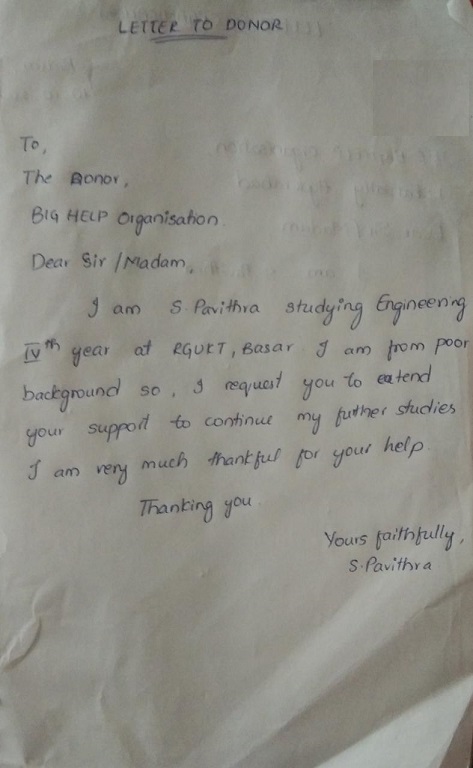 LETTER TO DONOR
To,
The Donor,
BIG HELP Organisation.
Dear Sir / Madam,
I am S. Pavithra studying Engineering
IVth year at RGUKT, Basar I am from poor
background so, I request you to extend
your support to continue my futher studies
I am very much thankful for your help.
Thanking you.
Yours faithfully,
S. Pavithra